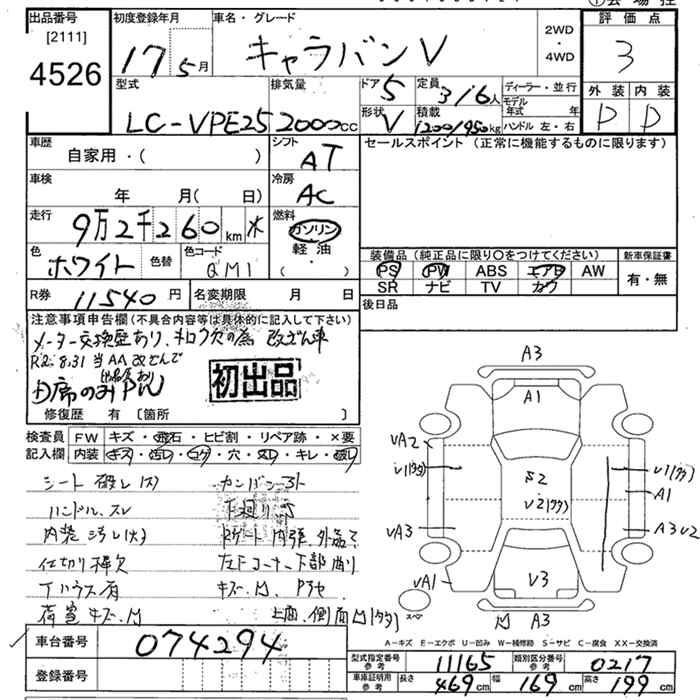 出品番号 初度登録年月 車名・グレード 評価点
[2111]
4526
17 5月 キャラバンV 2WD・4WD 3
型式 排気量 ドア 5 定員 3/6人 ディーラー・並行 外装 内装
LC-VPE25 2000cc 形状 V 積載 1200/950kg モデル年式 年 D D
ハンドル 左・右
車歴 シフト セールスポイント (正常に機能するものに限ります)
自家用・( ) AT
車検 冷房
年 月( 日) AC
走行 燃料
9万2千260km ガソリン
軽油
( )
色 色替 色コード 装備品 (純正品に限り○をつけてください) 新車保証書
ホワイト QM1 PS PW ABS エアB AW 有・無
SR ナビ TV カワ
R券 11540円 名変期限 月 日 後日品
注意事項申告欄(不具合内容等は具体的に記入して下さい)
メーター交換歴あり、 改ざん車
R2.8.31 当AA
D席のみPW
初出品
修復歴 有 [箇所 ]
検査員記入欄 FW キズ・飛石・ヒビ割・リペア跡・×要
内装 キズ・汚レ・コゲ・穴・スレ・キレ・破レ
シート破レ(大) カンバン跡
ハンドルスレ 下廻りサビ
内装汚レ(大)
仕切り棒欠 左下コーナー下部曲り
Tハウス有
荷室キズ・凹
A3
A1
VA2
V1(多々)
S2
V2(多々)
V1(多々)
A1
VA3
A3V2
VA1
V3
凹 A3
スペア
A-キズ E-エクボ U-凹み W-補修跡 S-サビ C-腐食 XX-交換済
車台番号 074294
登録番号
型式指定番号 参考 11165 類別区分番号 参考 0217
車庫証明用 参考 長さ 469cm 幅 169cm 高さ 199cm